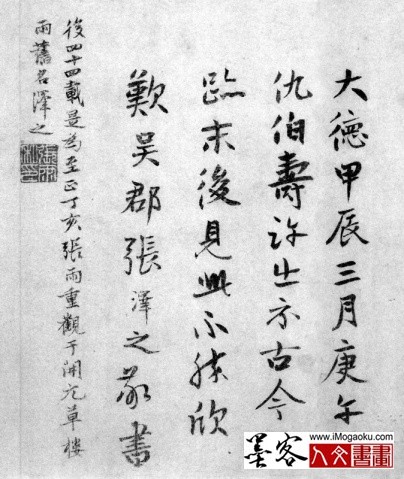 大德甲辰三月庚午
仇伯壽許出示古今
跡末後見此不勝欣
歎吳郡張澤之敬書
後四十四載是為至正丁亥張雨重觀于開元草樓
雨舊名澤之
墨客
www.iMogaoku.com
人文書畫